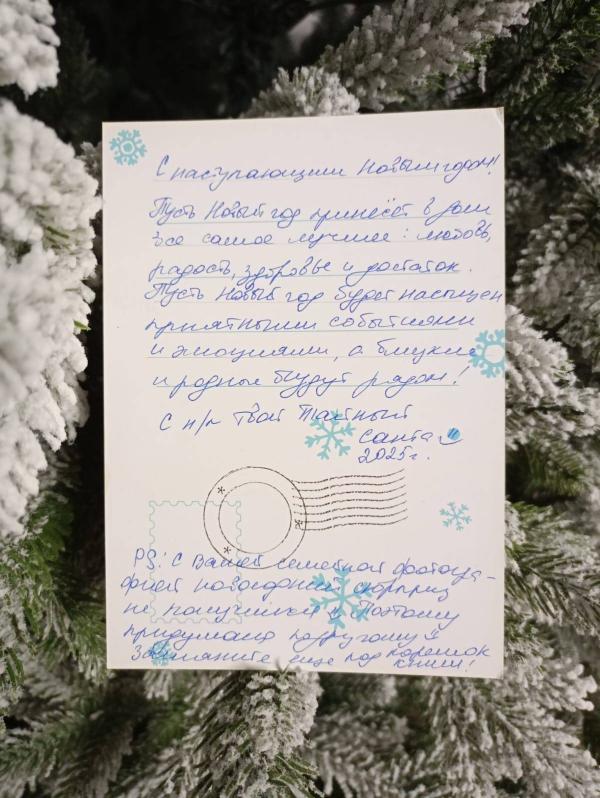 С наступающим Новым годом!
Пусть Новый год принесёт в дом
все самое лучшее: любовь,
радость, здоровье и достаток.
Пусть Новый год будет насыщен
приятными событиями
и эмоциями, а близкие
и родные будут рядом!
С н/г Твой Тайный
Санта
2025г.
PS: С Вашей семейной фотогра-
фией новогодний сюрприз
не получился. Поэтому
придумала по другому
Загляните еще под корешок
книги!